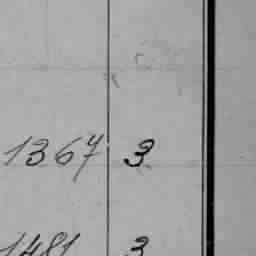 1367 3
1481 3